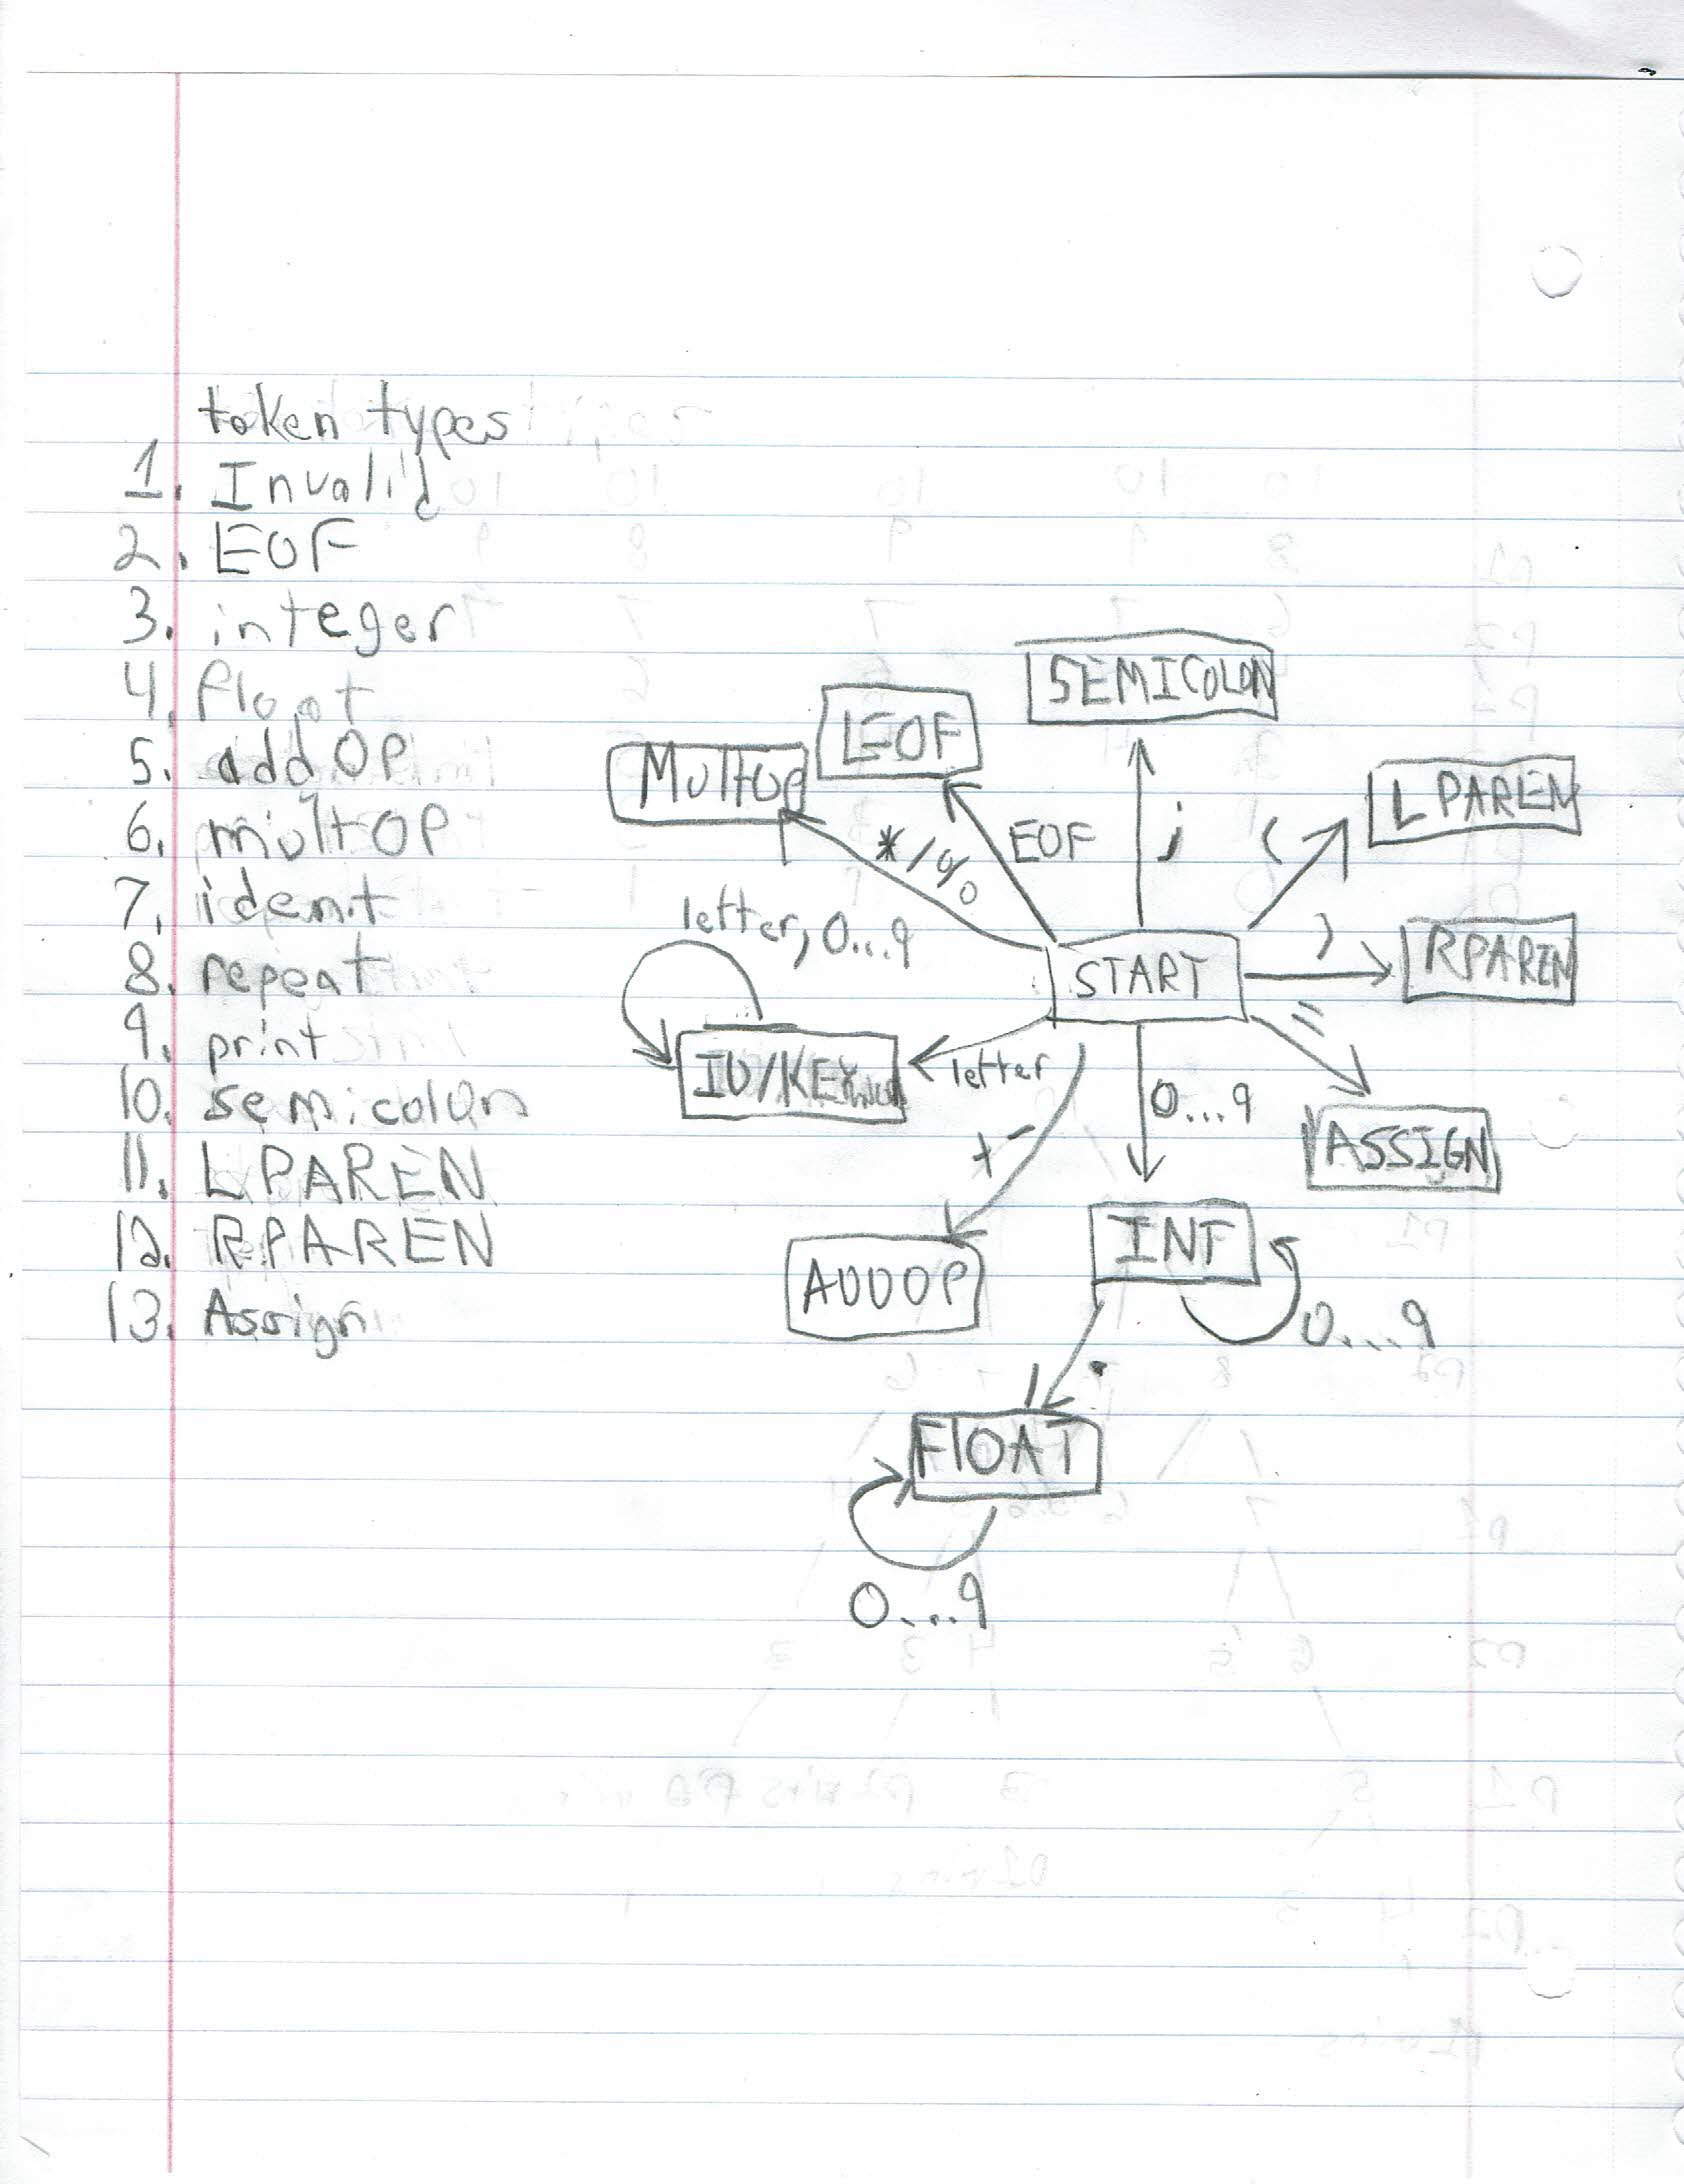 token types
1. Invalid
2. EOF
3. integer
4. float
5. addOP
6. multOP
7. ident
8. repeat
9. print
10. semicolon
11. LPAREN
12. RPAREN
13. Assign
SEMICOLON
EOF
MultOP
LPAREN
* / %
EOF
;
(
letter, 0...9
START
)
RPAREN
ID/KEY
letter
=
0...9
+ -
ASSIGN
INT
ADDOP
0...9
.
FlOAT
0...9